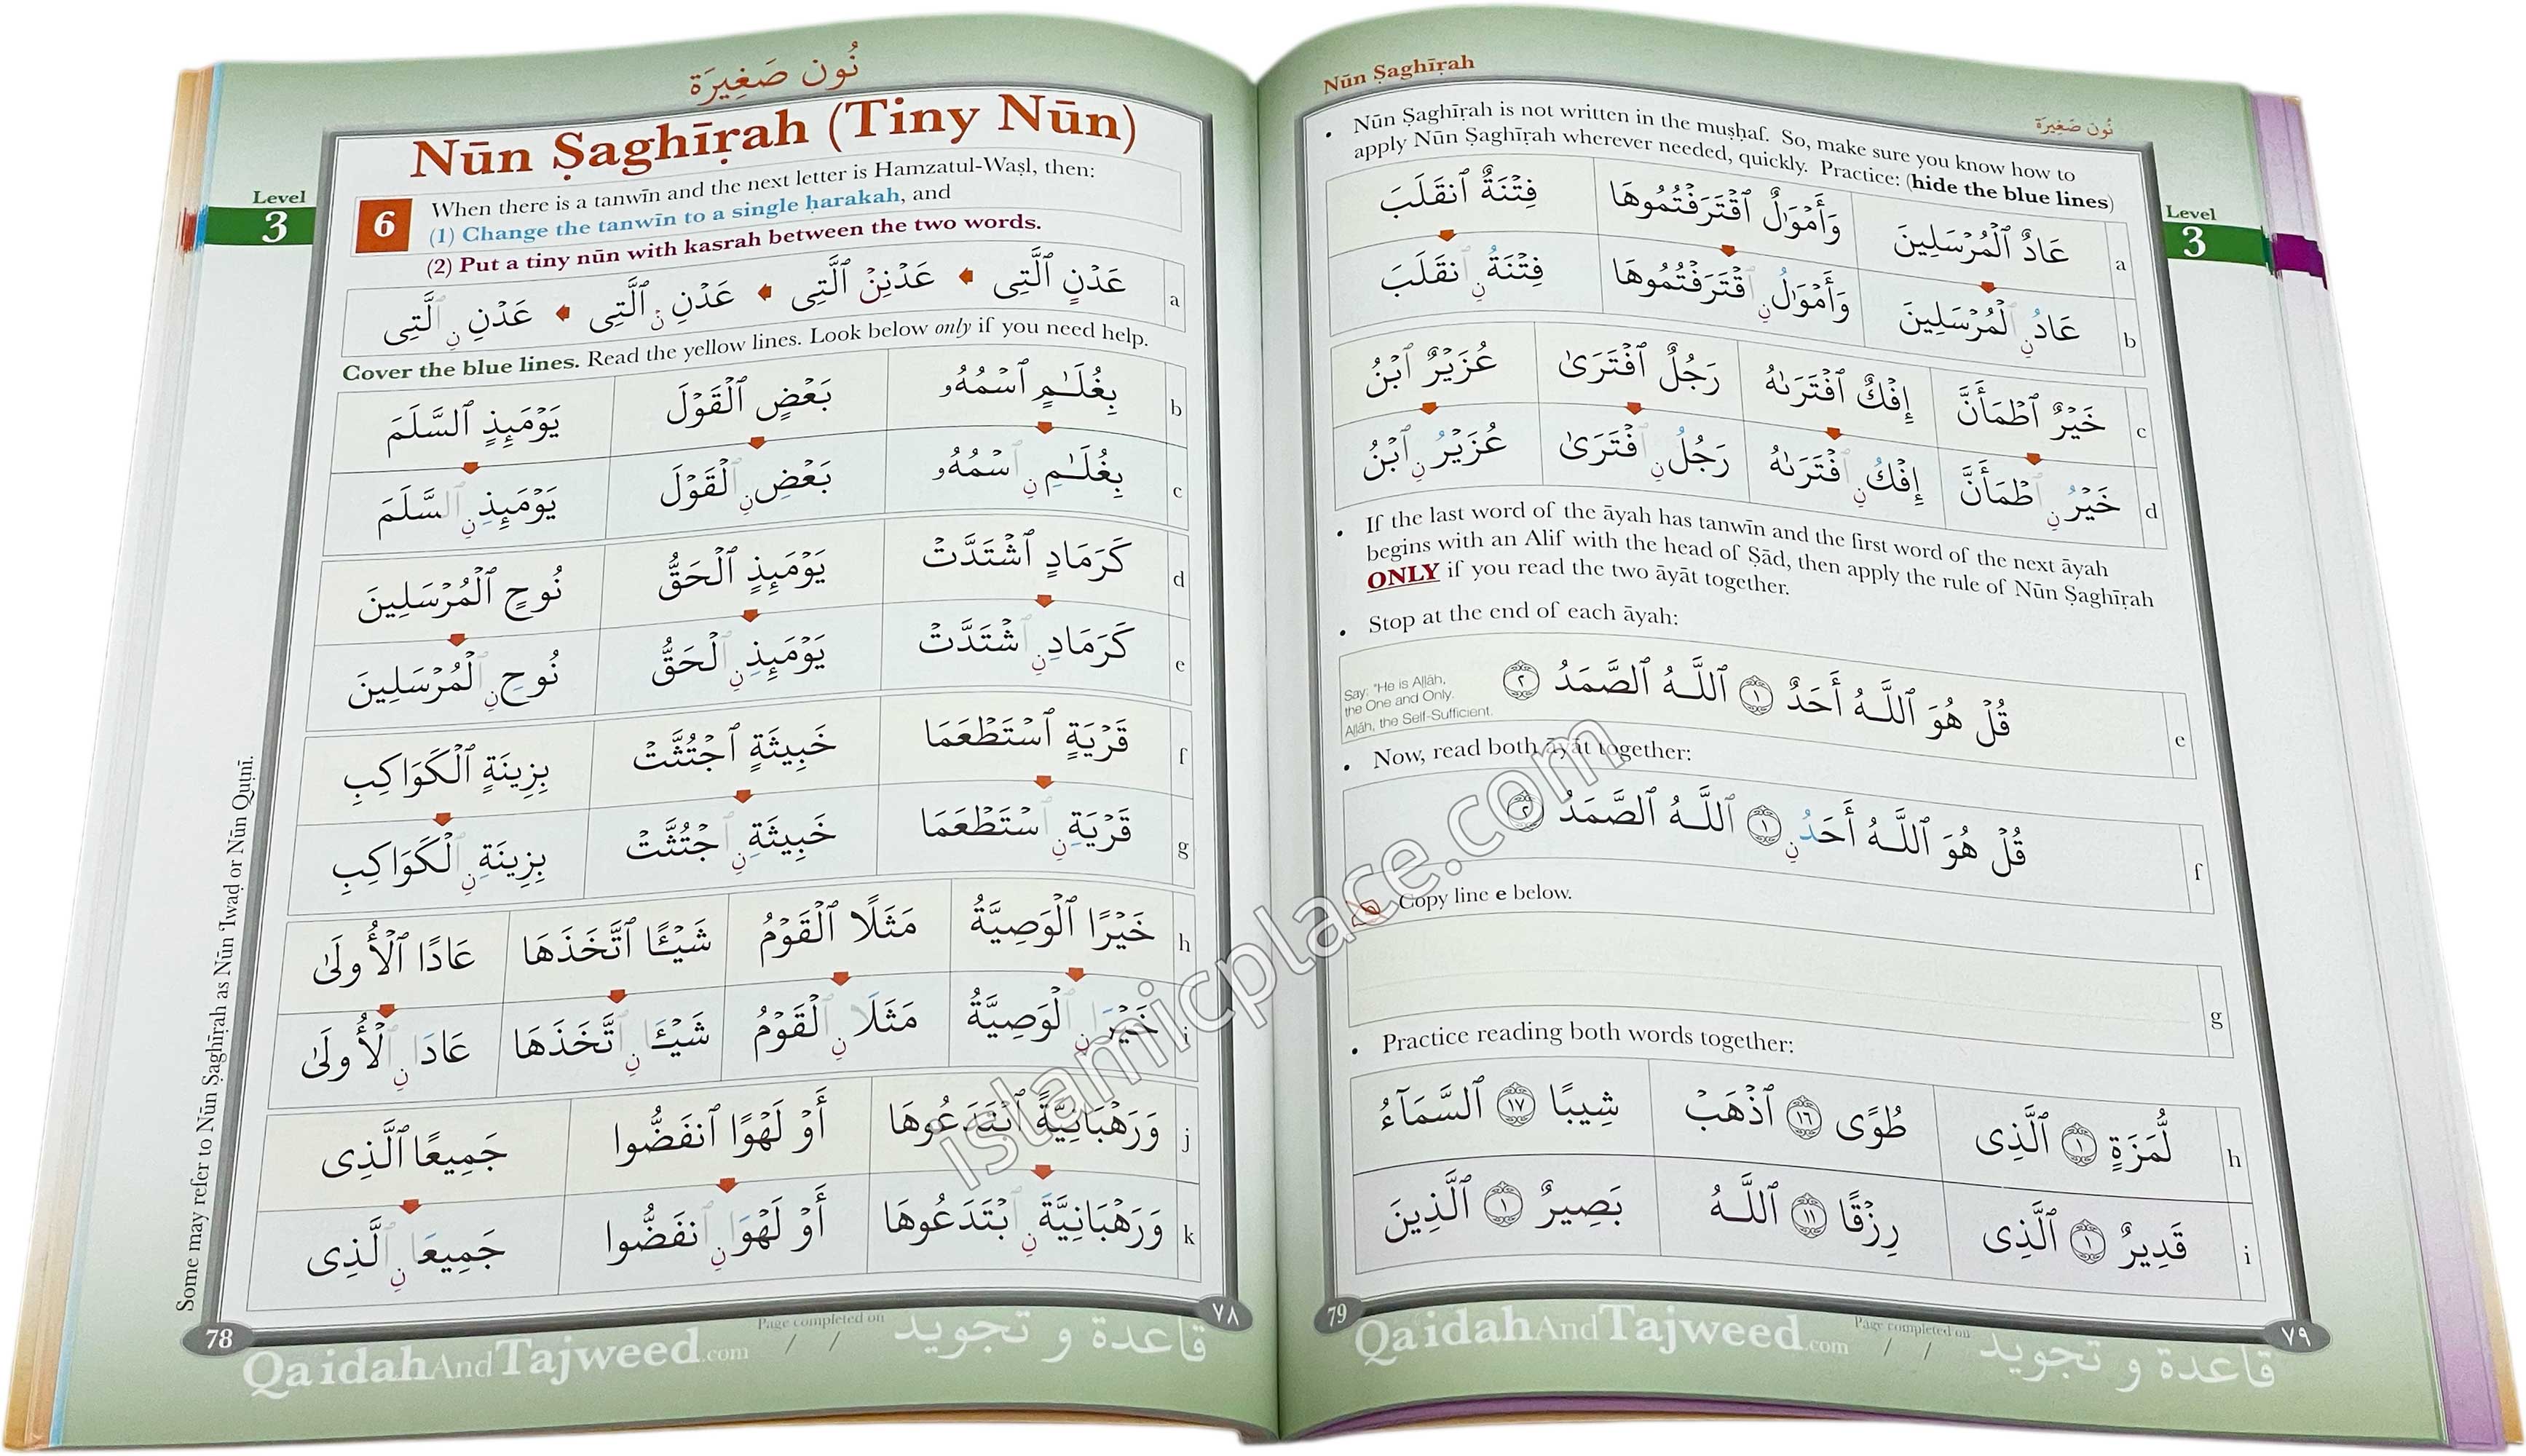 نُون صَغِيرَة
Nūn Ṣaghīṛah (Tiny Nūn)
Level
3
6
When there is a tanwīn and the next letter is Hamzatul-Waṣl, then:
(1) Change the tanwīn to a single ḥarakah, and
(2) Put a tiny nūn with kasrah between the two words.
عَدْنٍ ٱلَّتِى عَدْنِنِ ٱلَّتِى عَدْنِ نِ ٱلَّتِى عَدْنِ نِ ٱلَّتِى a
Cover the blue lines. Read the yellow lines. Look below only if you need help.
بِغُلَـٰمٍ ٱسْمُهُۥ بَعْضٍ ٱلْقَوْلَ يَوْمَئِذٍ ٱلسَّلَمَ b
بِغُلَـٰمِ نِ ٱسْمُهُۥ بَعْضِ نِ ٱلْقَوْلَ يَوْمَئِذِ نِ ٱلسَّلَمَ c
كَرَمَادٍ ٱشْتَدَّتْ يَوْمَئِذٍ ٱلْحَقُّ نُوحٍ ٱلْمُرْسَلِينَ d
كَرَمَادِ نِ ٱشْتَدَّتْ يَوْمَئِذِ نِ ٱلْحَقُّ نُوحِ نِ ٱلْمُرْسَلِينَ e
قَرْيَةٍ ٱسْتَطْعَمَا خَبِيثَةٍ ٱجْتُثَّتْ بِزِينَةٍ ٱلْكَوَاكِبِ f
قَرْيَةِ نِ ٱسْتَطْعَمَا خَبِيثَةِ نِ ٱجْتُثَّتْ بِزِينَةِ نِ ٱلْكَوَاكِبِ g
خَيْرًا ٱلْوَصِيَّةُ مَثَلًا ٱلْقَوْمُ شَيْـًٔا ٱتَّخَذَهَا عَادًا ٱلْأُولَىٰ h
خَيْرَا نِ ٱلْوَصِيَّةُ مَثَلَا نِ ٱلْقَوْمُ شَيْـَٔا نِ ٱتَّخَذَهَا عَادَا نِ ٱلْأُولَىٰ i
وَرَهْبَانِيَّةً ٱبْتَدَعُوهَا أَوْ لَهْوًا ٱنفَضُّوا جَمِيعًا ٱلَّذِى j
وَرَهْبَانِيَّةَ نِ ٱبْتَدَعُوهَا أَوْ لَهْوَا نِ ٱنفَضُّوا جَمِيعَا نِ ٱلَّذِى k
Some may refer to Nūn Ṣaghīṛah as Nūn ʿIwaḍ or Nūn Quṭnī.
78
QaidahAndTajweed.com
Page completed on / /
قاعدة و تجويد
٧٨
Nūn Ṣaghīṛah
نُون صَغِيرَة
Level
3
• Nūn Ṣaghīṛah is not written in the muṣḥaf. So, make sure you know how to
apply Nūn Ṣaghīṛah wherever needed, quickly. Practice: (hide the blue lines)
عَادٌ ٱلْمُرْسَلِينَ وَأَمْوَٰلٌ ٱقْتَرَفْتُمُوهَا فِتْنَةٌ ٱنقَلَبَ a
عَادُ نِ ٱلْمُرْسَلِينَ وَأَمْوَٰلُ نِ ٱقْتَرَفْتُمُوهَا فِتْنَةُ نِ ٱنقَلَبَ b
خَيْرٌ ٱطْمَأَنَّ إِفْكٌ ٱفْتَرَىٰهُ رَجُلٌ ٱفْتَرَىٰ عُزَيْرٌ ٱبْنُ c
خَيْرُ نِ ٱطْمَأَنَّ إِفْكُ نِ ٱفْتَرَىٰهُ رَجُلُ نِ ٱفْتَرَىٰ عُزَيْرُ نِ ٱبْنُ d
• If the last word of the āyah has tanwīn and the first word of the next āyah
begins with an Alif with the head of Ṣād, then apply the rule of Nūn Ṣaghīṛah
ONLY if you read the two āyāt together.
• Stop at the end of each āyah:
قُلْ هُوَ ٱللَّـهُ أَحَدٌ ١ ٱللَّـهُ ٱلصَّمَدُ ٢ e
Say: "He is Aḷḷāh,
the One and Only.
Aḷḷāh, the Self-Sufficient.
• Now, read both āyāt together:
قُلْ هُوَ ٱللَّـهُ أَحَدُ نِ ١ ٱللَّـهُ ٱلصَّمَدُ ٢ f
Copy line e below.
g
• Practice reading both words together:
لُّمَزَةٍ ١ ٱلَّذِى طُوًى ١٦ ٱذْهَبْ شِيبًا ١٧ ٱلسَّمَآءُ h
قَدِيرٌ ١ ٱلَّذِى رِزْقًا ١١ ٱللَّـهُ بَصِيرٌ ١ ٱلَّذِينَ i
79
QaidahAndTajweed.com
Page completed on / /
قاعدة و تجويد
٧٩
islamicplace.com